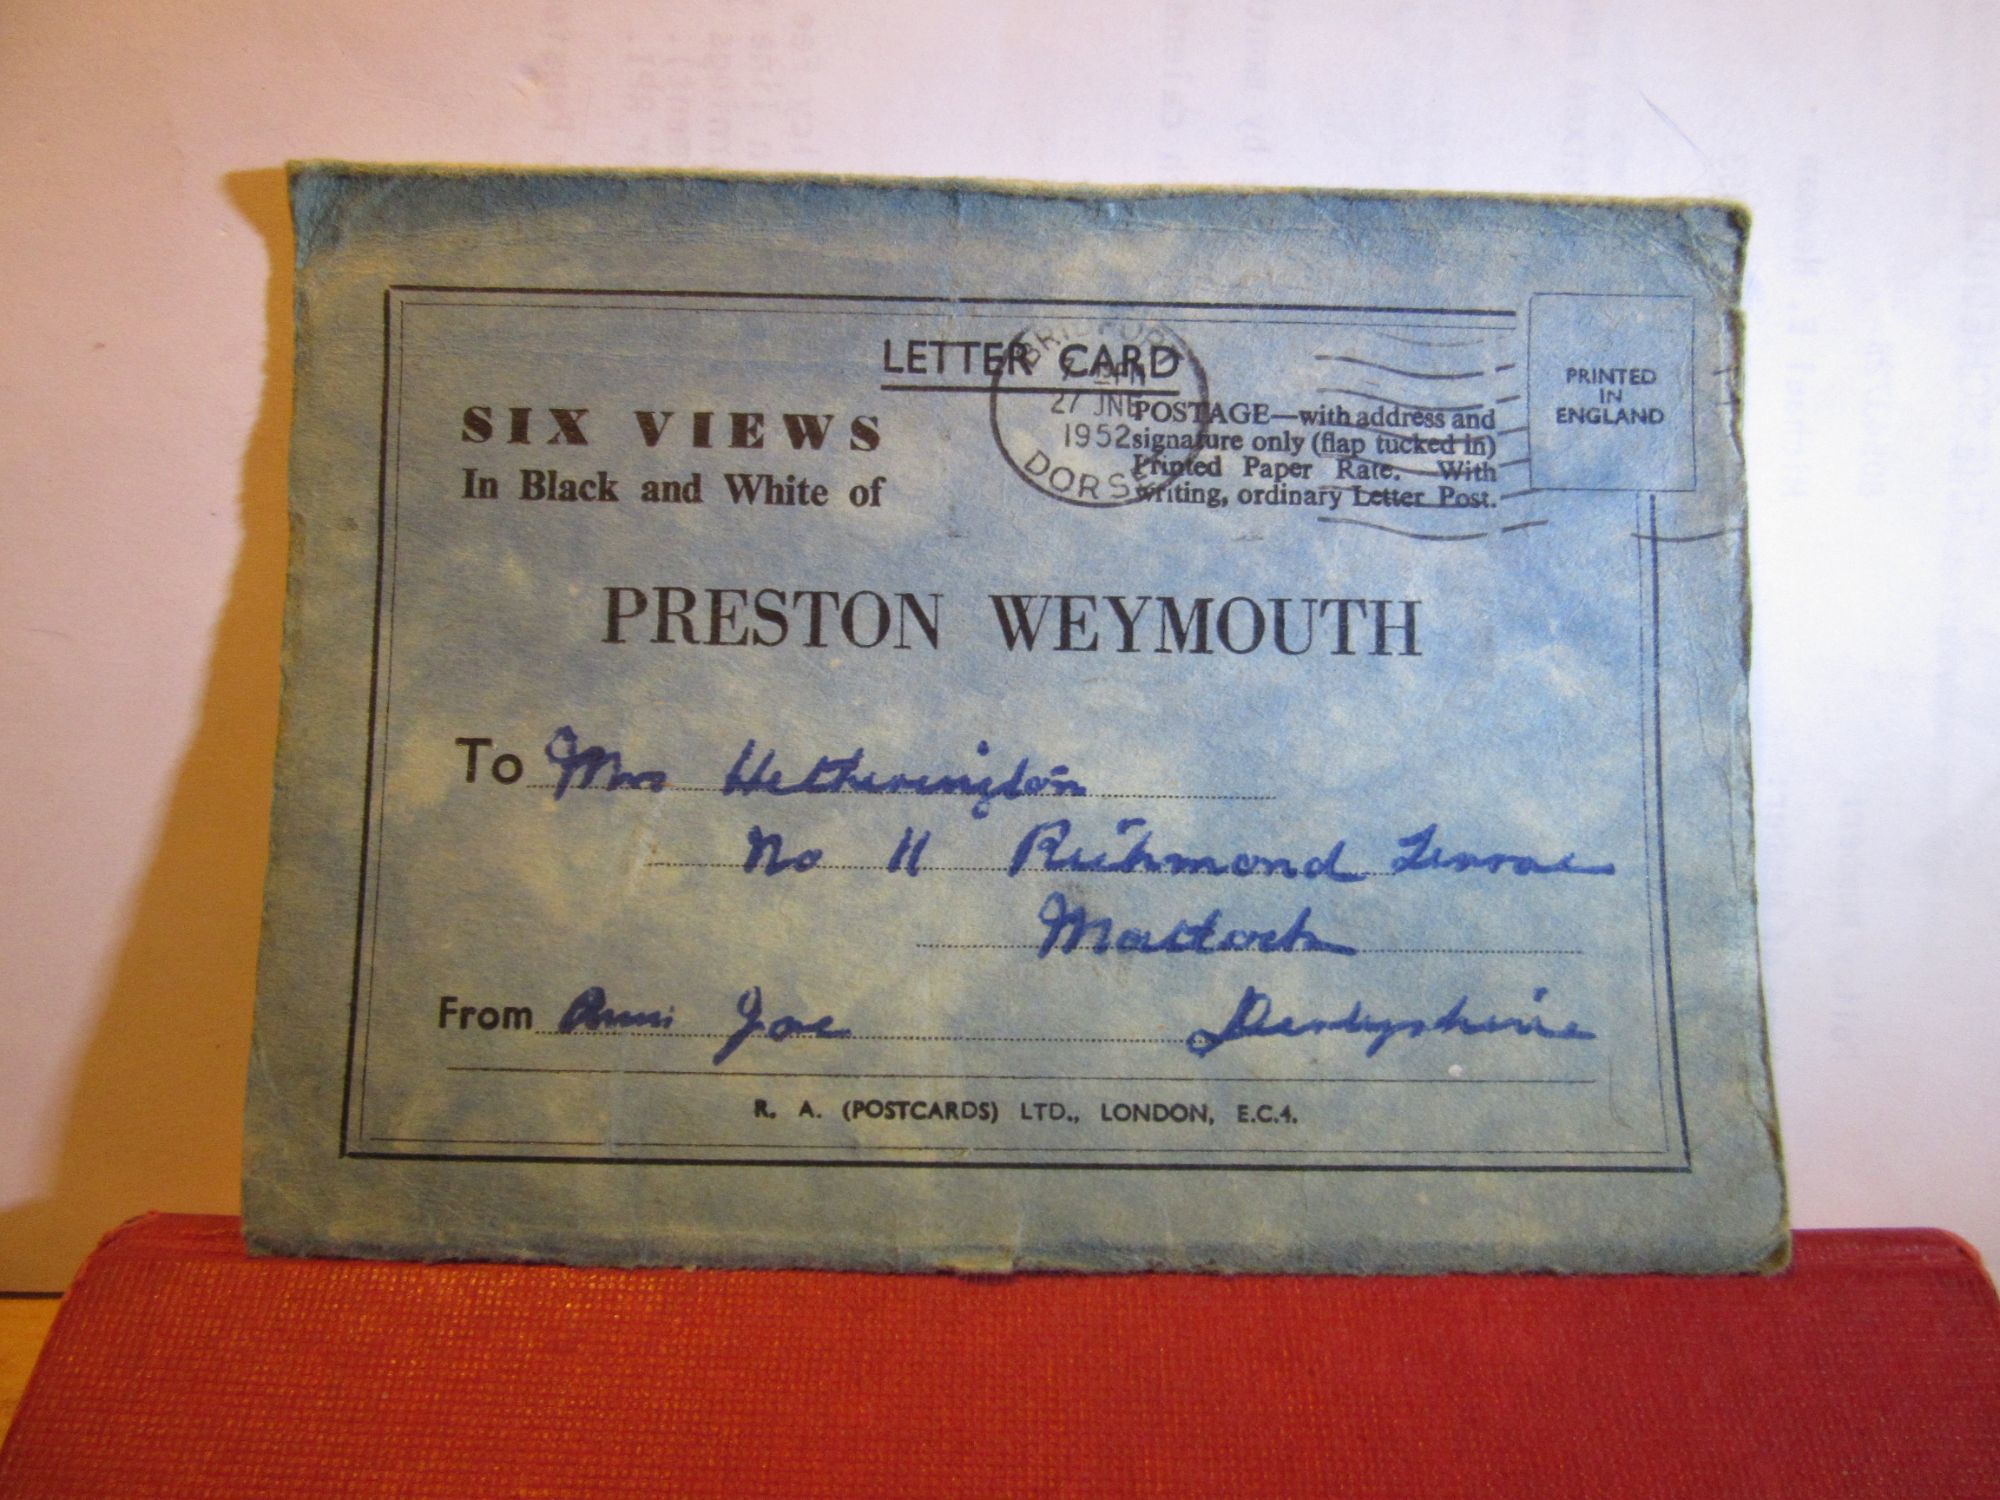 LETTER CARD
BRIDPORT
PM
27 JNE
1952
DORSET
SIX VIEWS
In Black and White of
POSTAGE—with address and
signature only (flap tucked in)
Printed Paper Rate. With
writing, ordinary Letter Post.
PRINTED
IN
ENGLAND
PRESTON WEYMOUTH
To Mrs Hetherington
No 11 Richmond Terrace
Matlock
From Joe
Derbyshire
R. A. (POSTCARDS) LTD., LONDON, E.C.4.